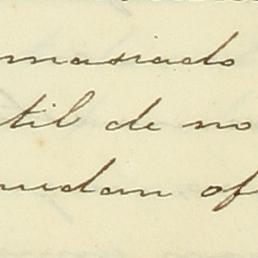 masiado
til de no
uedan of